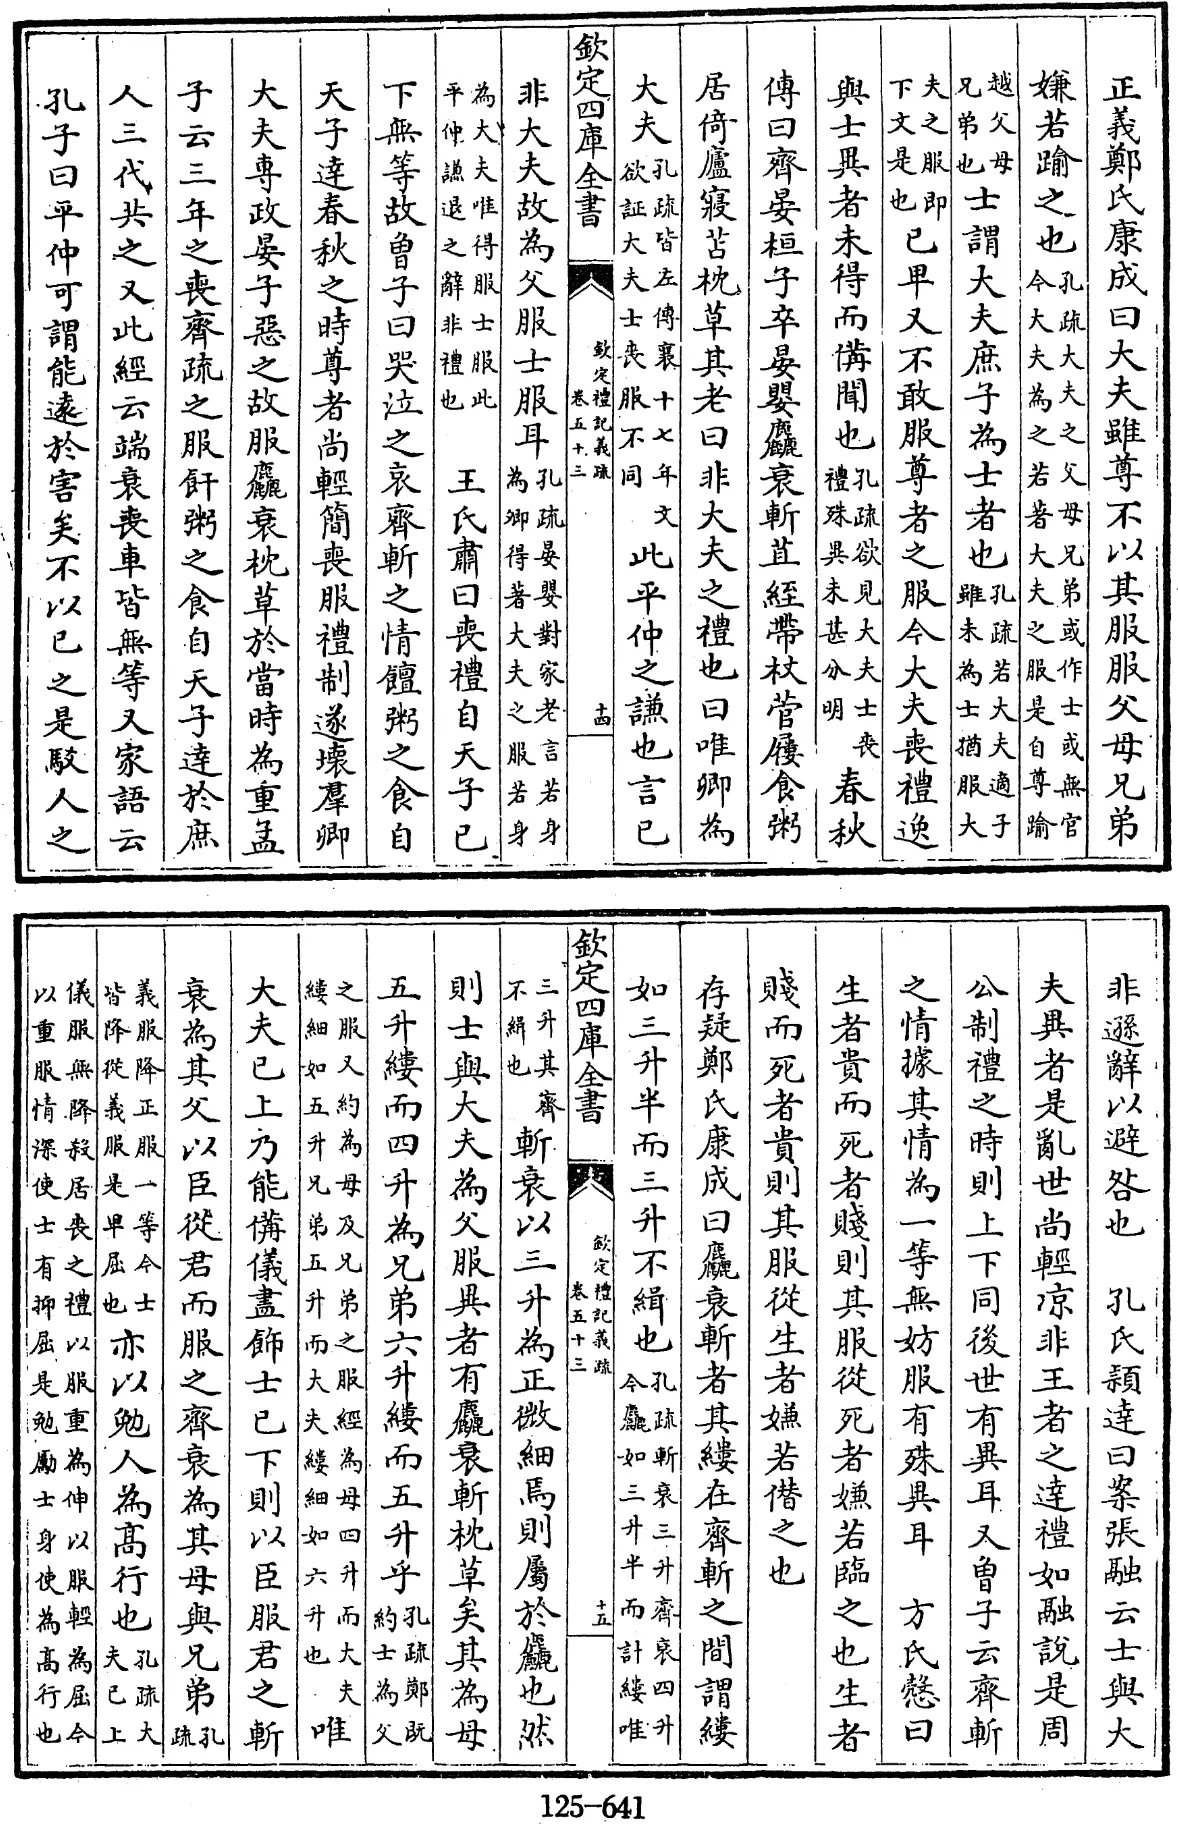 正義鄭氏康成曰大夫雖尊不以其服服父母兄弟
嫌若踰之也孔疏大夫之父母兄弟或作士或無官今大夫為之若著大夫之服是自尊踰
越父母兄弟也士謂大夫庶子為士者也孔疏若大夫適子雖未為士猶服大
夫之服即下文是也已卑又不敢服尊者之服今大夫喪禮逸
與士異者未得而備聞也孔疏欲見大夫士喪禮殊異未甚分明春秋
傳曰齊晏桓子卒晏嬰麤衰斬苴絰帶杖菅屨食粥
居倚廬寢苫枕草其老曰非大夫之禮也曰唯卿為
大夫孔疏皆左傳襄十七年文欲証大夫士喪服不同此平仲之謙也言已
欽定四庫全書
欽定禮記義疏
卷五十三
十四
非大夫故為父服士服耳孔疏晏嬰對家老言若身為卿得著大夫之服若身
為大夫唯得服士服此平仲謙退之辭非禮也王氏肅曰喪禮自天子已
下無等故曾子曰哭泣之哀齊斬之情饘粥之食自
天子達春秋之時尊者尚輕簡喪服禮制遂壞羣卿
大夫專政晏子惡之故服麤衰枕草於當時為重孟
子云三年之喪齊疏之服飦粥之食自天子達於庶
人三代共之又此經云端衰喪車皆無等又家語云
孔子曰平仲可謂能遠於害矣不以已之是駁人之
非遜辭以避咎也 孔氏穎達曰案張融云士與大
夫異者是亂世尚輕凉非王者之達禮如融說是周
公制禮之時則上下同後世有異耳又曾子云齊斬
之情據其情為一等無妨服有殊異耳 方氏慤曰
生者貴而死者賤則其服從死者嫌若臨之也生者
賤而死者貴則其服從生者嫌若僭之也
存疑鄭氏康成曰麤衰斬者其縷在齊斬之間謂縷
如三升半而三升不緝也孔疏斬衰三升齊衰四升今麤如三升半而計縷唯
欽定四庫全書
欽定禮記義疏
卷五十三
十五
三升其齊不緝也斬衰以三升為正微細焉則屬於麤也然
則士與大夫為父服異者有麤衰斬枕草矣其為母
五升縷而四升為兄弟六升縷而五升乎孔疏鄭既約士為父
之服又約為母及兄弟之服經為母四升而大夫縷細如五升兄弟五升而大夫縷細如六升也唯
大夫已上乃能備儀盡飾士已下則以臣服君之斬
衰為其父以臣從君而服之齊衰為其母與兄弟孔疏
義服降正服一等今士皆降從義服是卑屈也亦以勉人為高行也孔疏大夫已上
儀服無降殺居喪之禮以服重為伸以服輕為屈今以重服情深使士有抑屈是勉勵士身使為高行也
125-641